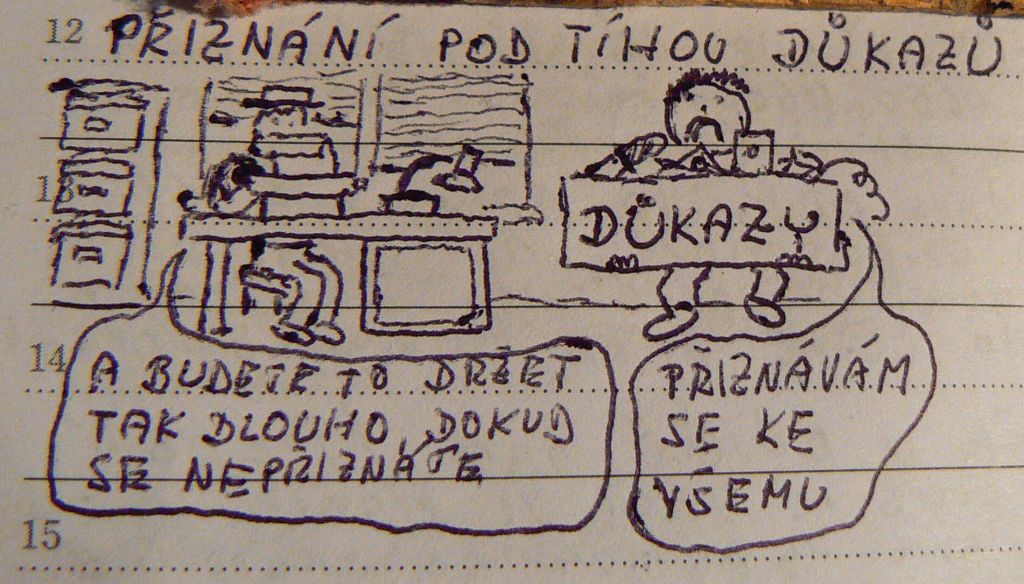 12 PŘIZNÁNÍ POD TÍHOU DŮKAZŮ
13
DŮKAZY
14
A BUDETE TO DRŽET
TAK DLOUHO, DOKUD
SE NEPŘIZNÁTE
PŘIZNÁVÁM
SE KE
VŠEMU
15